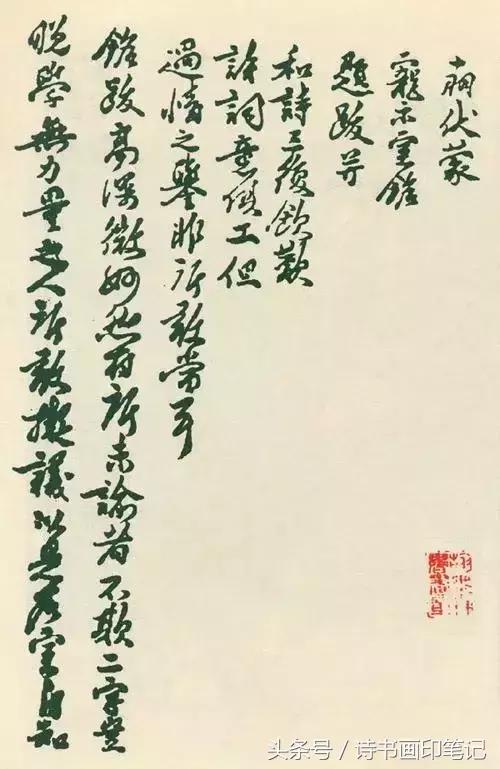 伏蒙
寵示室銘
題跋并
和詩三復欽歎
詩詞意俱工但
過情之譽非所敢當耳
銘跋高深微妙然有所未諭者不欺二字豈
晚學無力量之人所敢擬議以是名室自知
头条号 / 诗书画印笔记